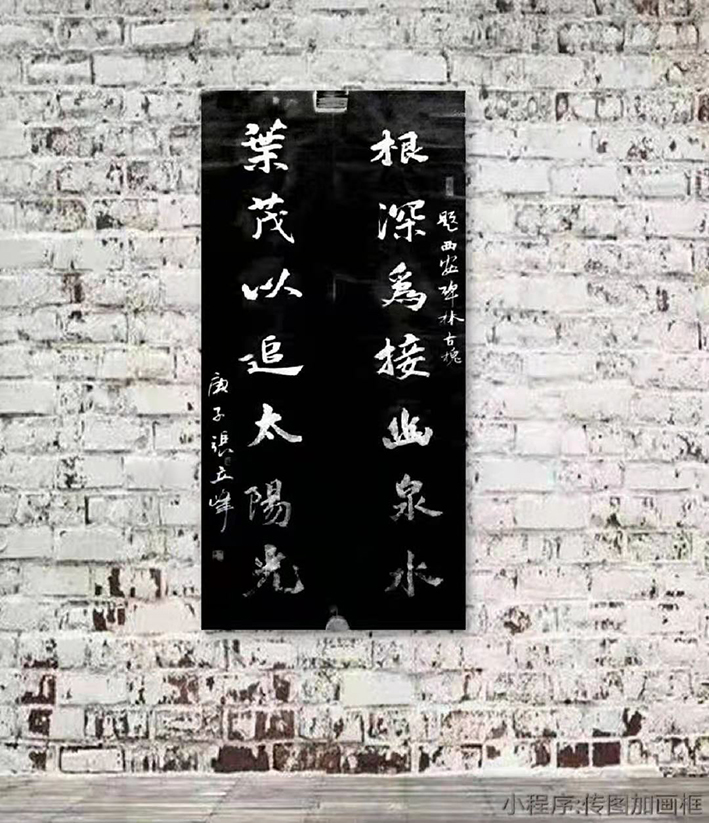 題西安碑林古槐
根深爲接幽泉水
葉茂以追太陽光
庚子張立峰
小程序:传图加画框